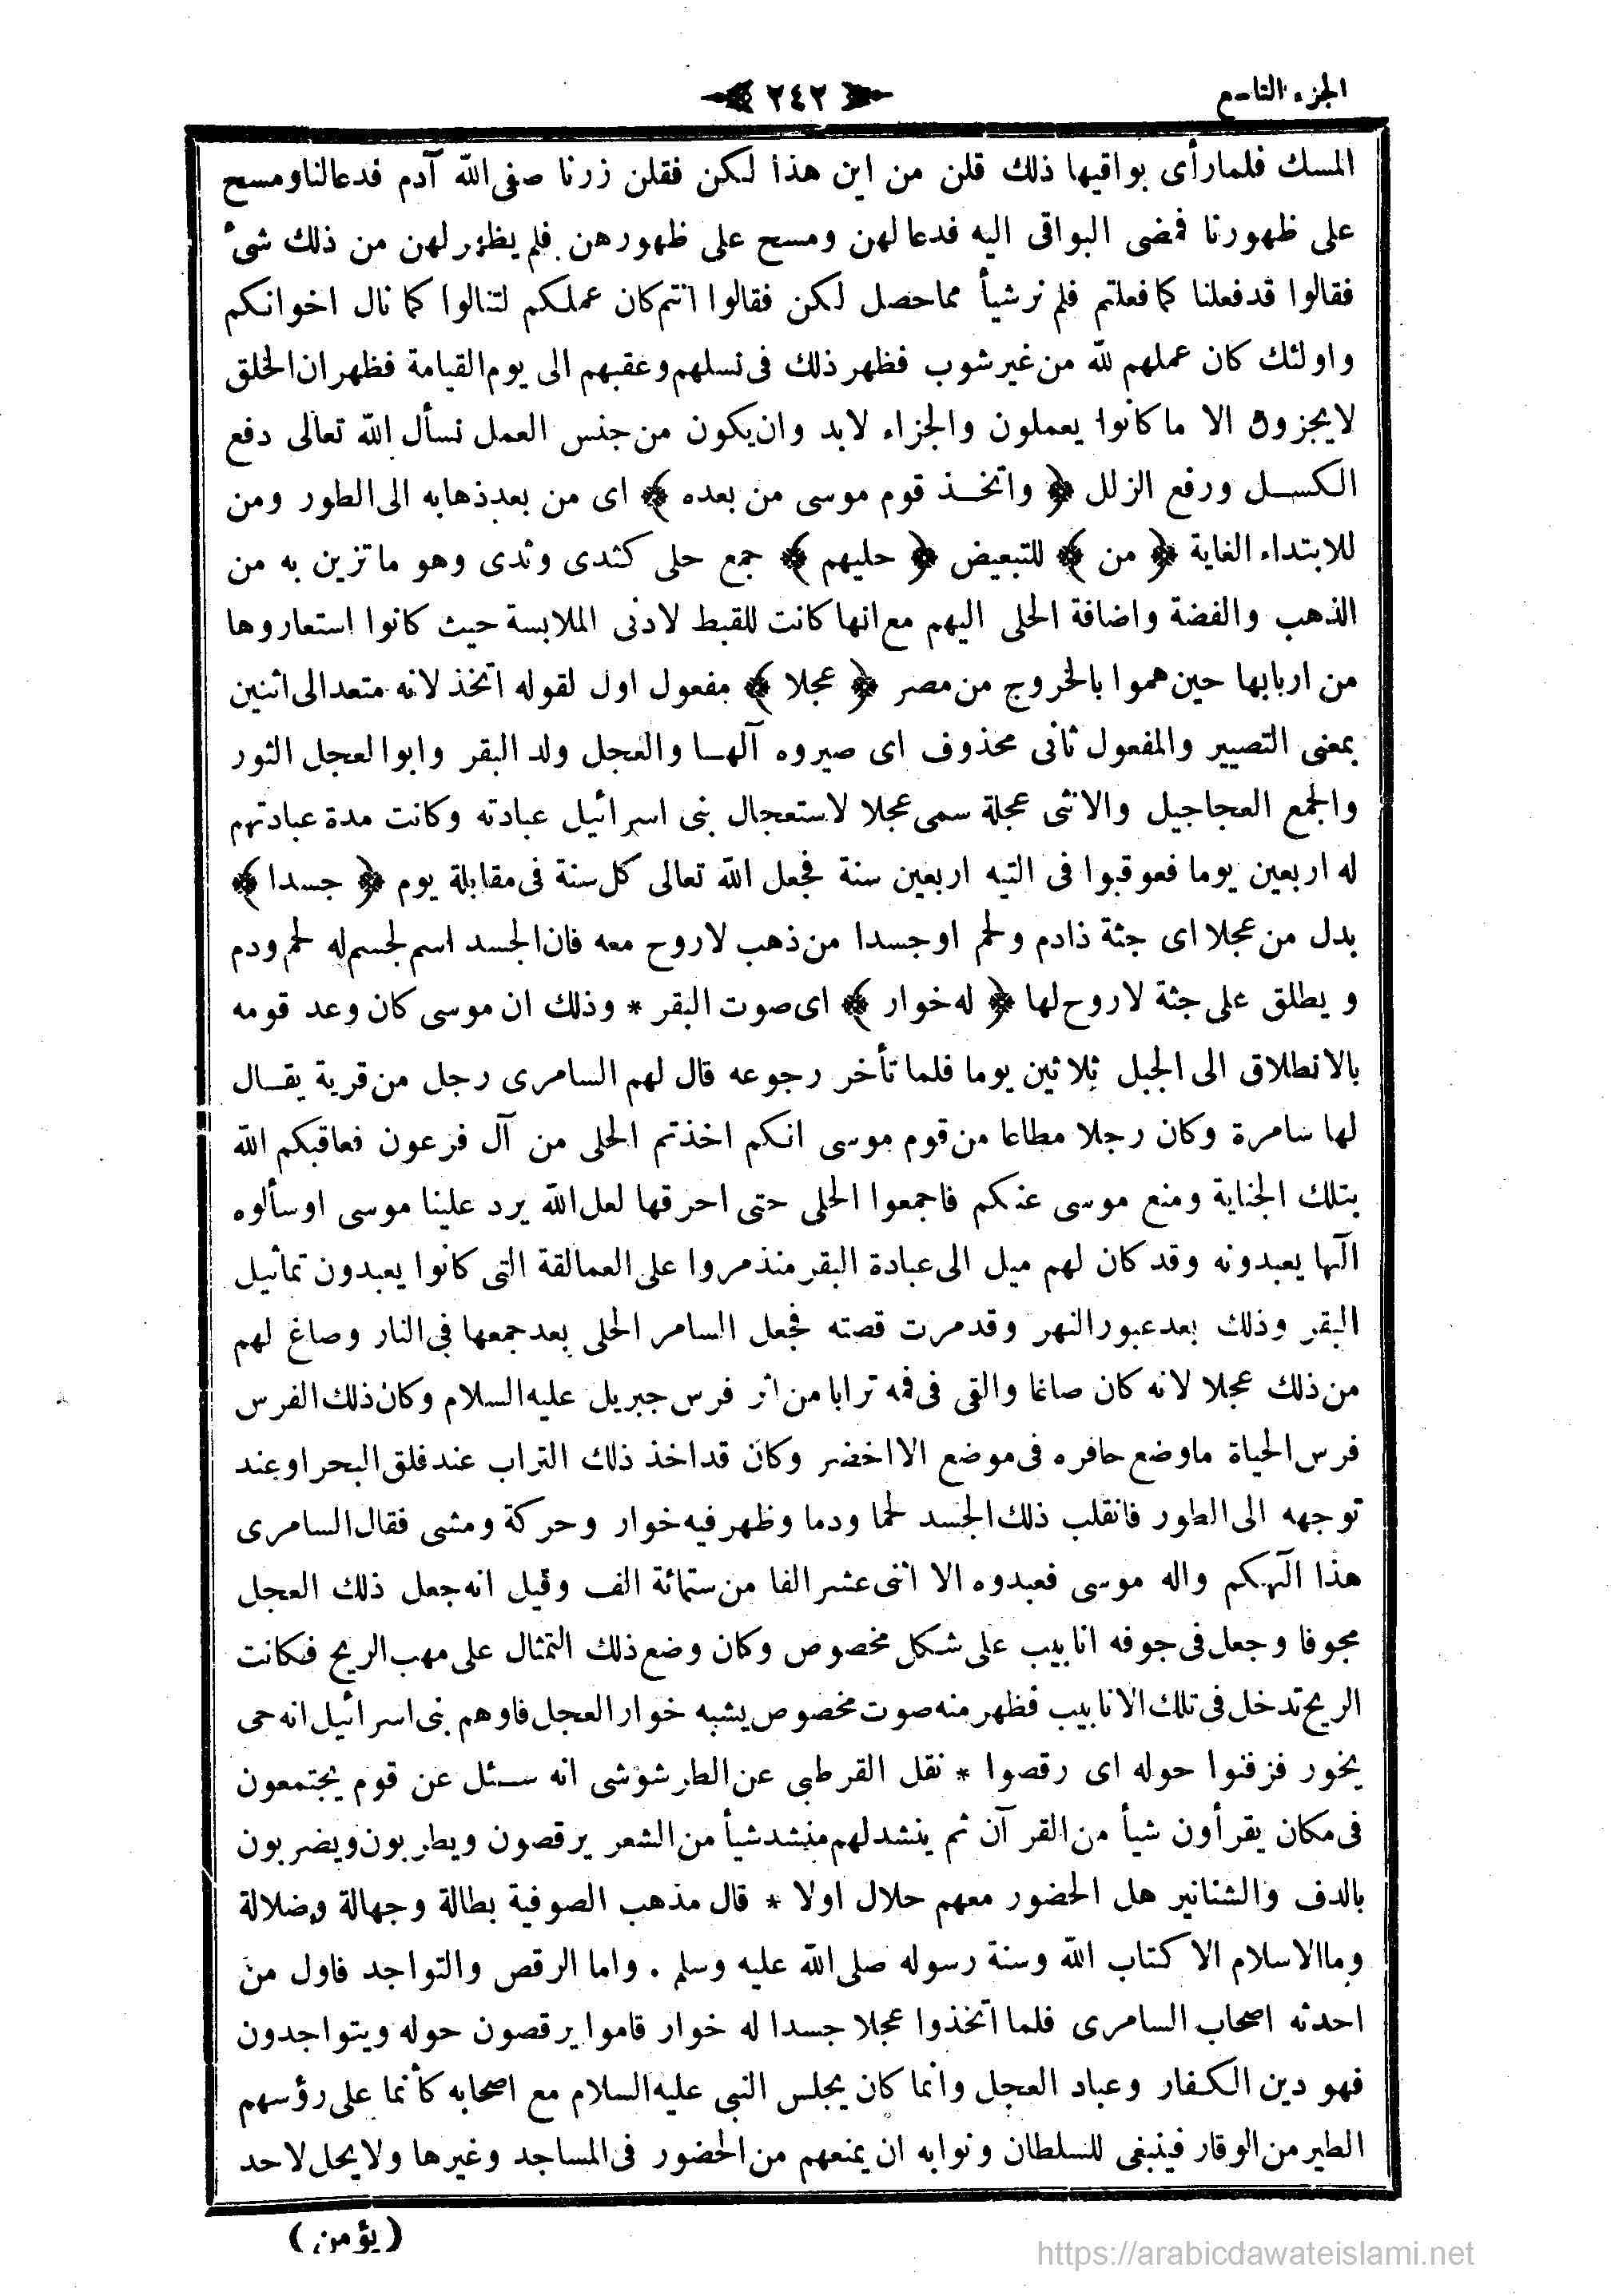 الجزء التاسع
﴿ ٢٤٢ ﴾
المسك فلما رأى بواقيها ذلك قلن من اين هذا لكن فقلن زرنا صفى الله آدم فدعا لنا ومسح
على ظهورنا فمضى البواقى اليه فدعا لهن ومسح على ظهورهن فلم يظهر لهن من ذلك شئ
فقالوا قد فعلنا كما فعلتم فلم نر شيأ مما حصل لكن فقالوا انتم كان عملكم لتنالوا كما نال اخوانكم
واولئك كان عملهم لله من غير شوب فظهر ذلك فى نسلهم وعقبهم الى يوم القيامة فظهر ان الخلق
لا يجزون الا ما كانوا يعملون والجزاء لابد وان يكون من جنس العمل نسأل الله تعالى دفع
الكسل ورفع الزلل ﴿ واتخذ قوم موسى من بعده ﴾ اى من بعد ذهابه الى الطور ومن
للابتداء الغاية ﴿ من ﴾ للتبعيض ﴿ حليهم ﴾ جمع حلى كثدى وثدى وهو ما تزين به من
الذهب والفضة واضافة الحلى اليهم مع انها كانت للقبط لادنى الملابسة حيث كانوا استعاروها
من اربابها حين هموا بالخروج من مصر ﴿ عجلا ﴾ مفعول اول لقوله اتخذ لانه متعد الى اثنين
بمعنى التصيير والمفعول ثانى محذوف اى صيروه آلهــا والعجل ولد البقر وابوا لعجل الثور
والجمع العجاجيل والانثى عجلة سمى عجلا لاستعجال بنى اسرائيل عبادته وكانت مدة عبادتهم
له اربعين يوما فعوقبوا فى التيه اربعين سنة فجعل الله تعالى كل سنة فى مقابلة يوم ﴿ جسدا ﴾
بدل من عجلا اى جثة ذا دم ولحم او جسدا من ذهب لا روح معه فان الجسد اسم لجسم له لحم ودم
ويطلق على جثة لا روح لها ﴿ له خوار ﴾ اى صوت البقر * وذلك ان موسى كان وعد قومه
بالانطلاق الى الجبل ثلاثين يوما فلما تأخر رجوعه قال لهم السامرى رجل من قرية يقــال
لها سامرة وكان رجلا مطاعا من قوم موسى انكم اخذتم الحلى من آل فرعون فعاقبكم الله
بتلك الجناية ومنع موسى عنكم فاجمعوا الحلى حتى احرقها لعل الله يرد علينا موسى او سألوه
آلها يعبدونه وقد كان لهم ميل الى عبادة البقر منذ مروا على العمالقة التى كانوا يعبدون تماثيل
البقر وذلك بعد عبور النهر وقد مرت قصته فجعل السامر الحلى بعد جمعها فى النار وصاغ لهم
من ذلك عجلا لانه كان صائغا والقى فى فمه ترابا من اثر فرس جبريل عليه السلام وكان ذلك الفرس
فرس الحياة ما وضع حافره فى موضع الا اخضر وكان قد اخذ ذلك التراب عند فلق البحر او عند
توجهه الى الطور فانقلب ذلك الجسد لحما ودما وظهر فيه خوار وحركة ومشى فقال السامرى
هذا آلهكم واله موسى فعبدوه الا اثنى عشر الفا من ستمائة الف وقيل انه جعل ذلك العجل
مجوفا وجعل فى جوفه انابيب على شكل مخصوص وكان وضع ذلك التمثال على مهب الريح فكانت
الريح تدخل فى تلك الانابيب فظهر منه صوت مخصوص يشبه خوار العجل فاوهم بنى اسرائيل انه حى
يخور فزفنوا حوله اى رقصوا * نقل القرطبى عن الطرشوشى انه سئل عن قوم يجتمعون
فى مكان يقرأون شيأ من القرآن ثم ينشد لهم منشد شيأ من الشعر يرقصون ويطربون ويضربون
بالدف والشنانير هل الحضور معهم حلال اولا * قال مذهب الصوفية بطالة وجهالة وضلالة
وما الاسلام الا كتاب الله وسنة رسوله صلى الله عليه وسلم . واما الرقص والتواجد فاول من
احدثه اصحاب السامرى فلما اتخذوا عجلا جسدا له خوار قاموا يرقصون حوله ويتواجدون
فهو دين الكفار وعباد العجل وانما كان يجلس النبى عليه السلام مع اصحابه كأنما على رؤسهم
الطير من الوقار فينبغى للسلطان ونوابه ان يمنعهم من الحضور فى المساجد وغيرها ولا يحل لاحد
( يؤمن )
https://arabicdawateislami.net